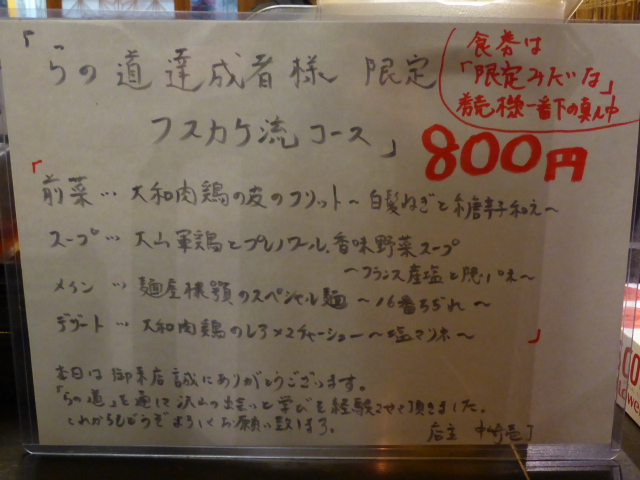 「らの道達成者様 限定
フスカケ流コース」
食券は
「限定みだいな」
券売様一番下の真ん中
800円
「前菜…大和肉鶏の皮のフリット〜白髪ねぎと糖辛子和え〜
スープ…大山軍鶏とプレノワール、香味野菜スープ
〜フランス産塩と隠し味〜
メイン…麺屋様顎のスペシャル麺〜16番ちぢれ〜
デザート…大和肉鶏のレアメスチャーシュー〜塩マリネ〜」
本日は御来店誠にありがとうございます。
「らの道」を通じ沢山の出逢いと学びを経験させて頂きました。
これからもどうぞよろしくお願い致します。
店主 中崎壱丁